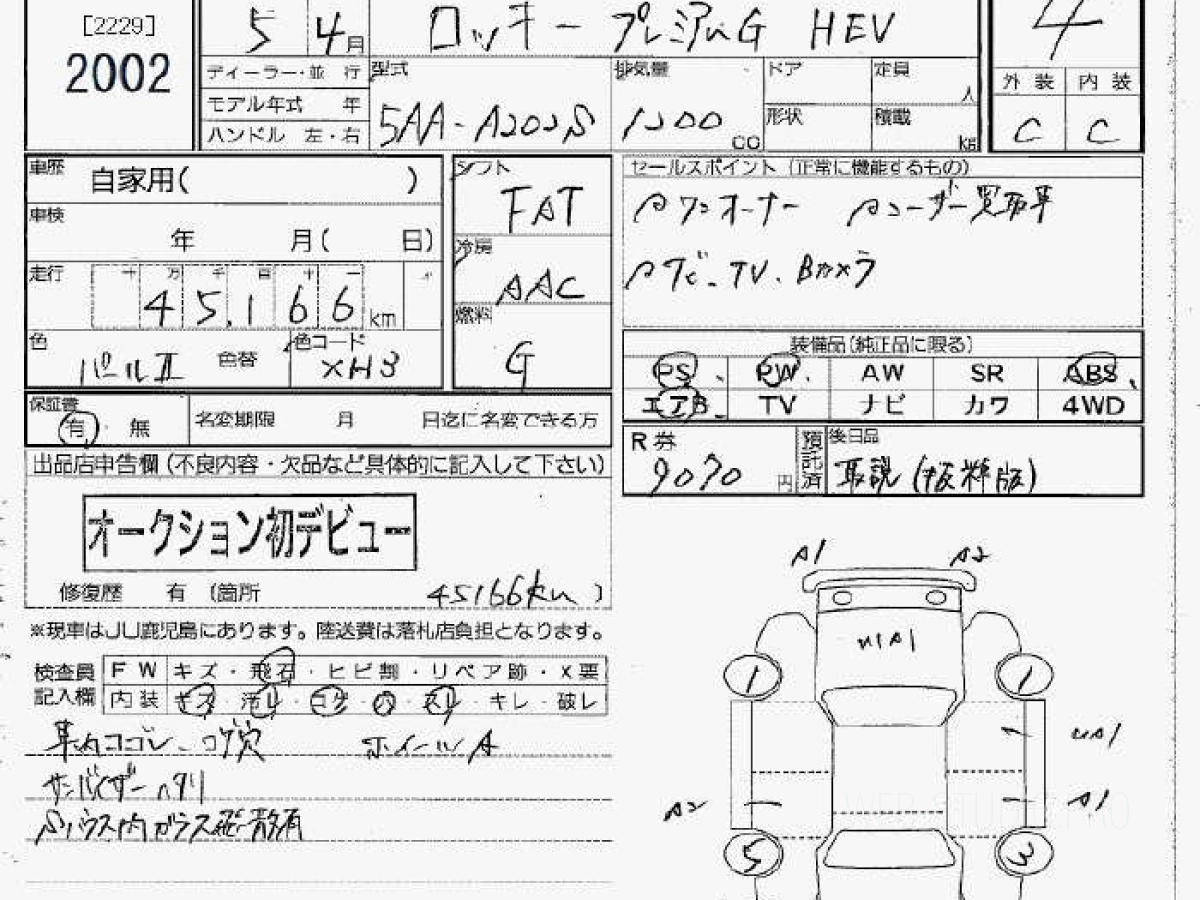 [2229]
2002
5 4月
ロッキー プレミアムG HEV
4
ディーラー・並 行
モデル年式 年
ハンドル 左・右
型式
5AA-A202S
排気量
1200
cc
ドア
定員
人
形状
積載
kg
外装 内装
C C
車歴
自家用( )
車検
年 月( 日)
走行
十 万 千 百 十 一
45,166 km
色
パールII
色替
色コード
XH3
シフト
FAT
冷房
AAC
燃料
G
セールスポイント(正常に機能するもの)
ワンオーナー ユーザー買取車
ナビ.TV.Bカメラ
装備品(純正品に限る)
PS PW AW SR ABS
エアB TV ナビ カワ 4WD
保証書
有 無
名変期限 月 日迄に名変できる方
R券
9070
円
預託済
後日品
取説(抜粋版)
出品店申告欄(不良内容・欠品など具体的に記入して下さい)
オークション初デビュー
修復歴 有 (箇所 45166km )
※現車はJU鹿児島にあります。陸送費は落札店負担となります。
検査員
記入欄
FW キズ・飛石・ヒビ割・リペア跡・X要
内装 キズ・汚レ・コゲ・穴・スレ・キレ・破レ
車内ヨゴレ、コゲ穴 ホイールA
サンバイザー
ハウス内ガラス 散有
A1 A2
A1
1 1
A1
A2 A1
5 3